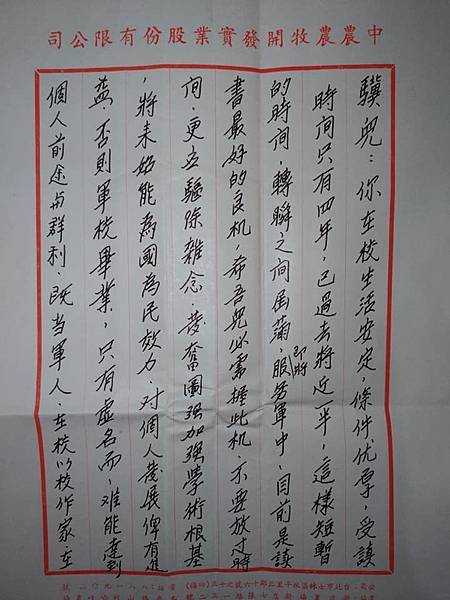 司公限有份股業實發開牧農農中
驥兒：你在校生活安定，條件优厚，受訓
時间只有四年，已過去將近一半，這樣短暫
的時间，轉瞬之间居滿，即將服务軍中，目前是讀
書最好的良机，希吾兒必需握此机，不要放过时
间．更应驅除雜念．發奮圖强加强學術根基
，將来始能為國為民效力．对個人發展俾有進
益．否則軍校畢業，只有虚名而，难能達到
個人前途与群利．既当軍人．在校以校作家．在